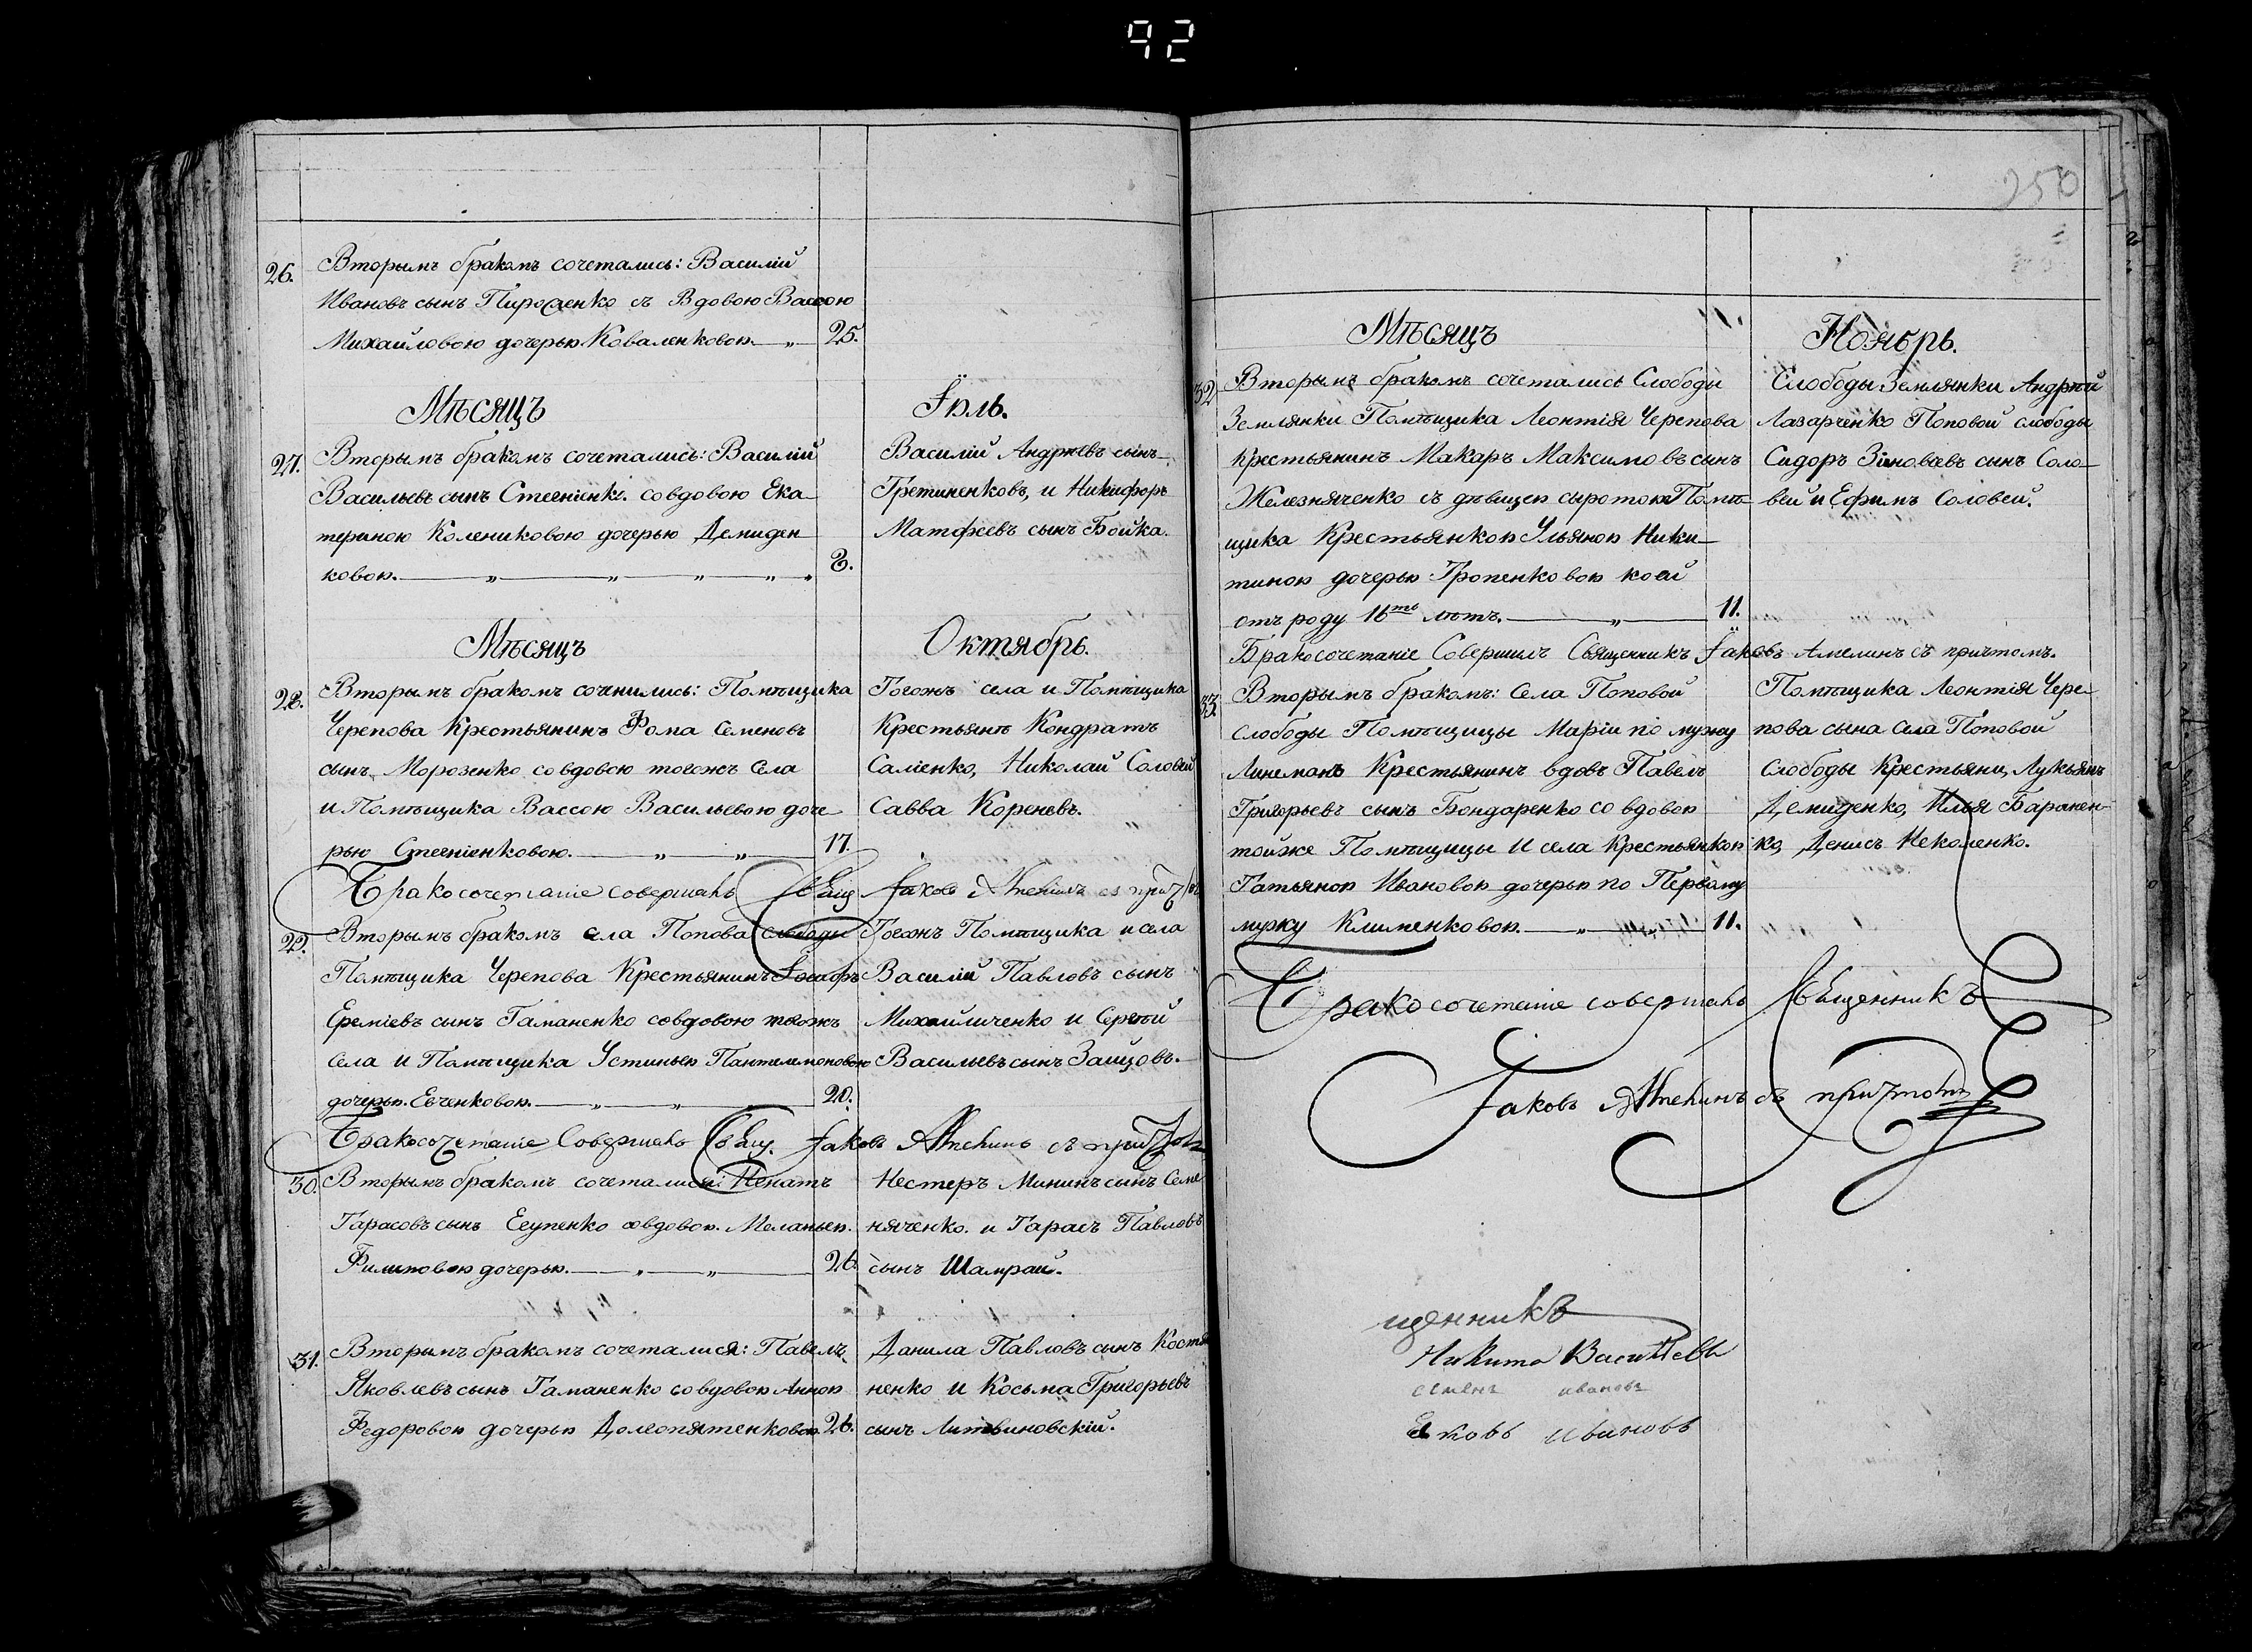 92
250
26. Вторымъ бракомъ сочетались: Василій
Ивановъ сынъ Пироженко съ Вдовою Вассою
Михайловою дочерью Коваленковою. 25.
Мѣсяцъ Іюль.
27. Вторымъ бракомъ сочетались: Василій
Васильевъ сынъ со вдовою Ека-
териною Колениковою дочерью Демиден
ковою. 8.
Василій Андреевъ сынъ
Гретиненковъ, и Никифоръ
Матфеевъ сынъ Бойка.
Мѣсяцъ Октябрь.
28. Вторымъ бракомъ сочинились: Помѣщика
Черепова Крестьянинъ Фома Семеновъ
сынъ Морозенко со вдовою тогожъ Села
и Помѣщика Вассою Васильевою доче
рью Стегніенковою. 17.
Тогожъ села и Помѣщика
Крестьянѣ Кондратъ
Саліенко, Николай Соловей
Савва Кореневъ.
Бракосочетаніе совершалъ Свящ Іаковъ Амелинъ съ причтом
29. Вторымъ бракомъ села Попова слободы
Помѣщика Черепова Крестьянинъ
Ереміевъ сынъ Гапаненко со вдовою тогожъ
Села и Помѣщика Устиньею Пантелемоновою
дочерью Евченковою. 20.
Тогожъ Помѣщика и села
Василій Павловъ сынъ
Михайличенко и Сергѣй
Васильевъ сынъ Заицовъ.
Бракосочетаніе Совершалъ Свящ. Іаковъ Амелинъ съ причтом
30. Вторымъ бракомъ сочеталися: Игнатъ
Тарасовъ сынъ Егупенко со вдовою Меланьею
Филиповою дочерью. 26.
Нестеръ Мининъ сынъ Семе
няченко. и Тарасъ Павловъ
сынъ Шамрай.
31. Вторымъ бракомъ сочеталися: Павелъ
Яковлевъ сынъ Гапаненко со вдовою Анною
Федоровою дочерью Долгопятенковою. 26.
Данила Павловъ сынъ Костя
ненко и Косьма Григорьевъ
сынъ Литвиновскій.
Мѣсяцъ Ноябрь.
32. Вторымъ бракомъ сочетались Слободы
Землянки Помѣщика Леонтія Черепова
Крестьянинъ Макаръ Максимовъ сынъ
Железняченко съ дѣвицею сиротою Помѣ-
щика Крестьянкою Ульяною Ники-
тиною дочерью Гропенковою коей
отъ роду 16ть лѣтъ. 11.
Слободы Землянки Андрѣй
Лазарченко Поповой слободы
Сидоръ Зіновіевъ сынъ Соло-
вей и Ефимъ Соловей.
Бракосочетаніе Совершилъ Священникъ Іаковъ Амелинъ съ причтомъ.
33. Вторымъ бракомъ: Села Поповой
Слободы Помѣщицы Маріи по мужу
Линеманъ Крестьянинъ вдовъ Павелъ
Григорьевъ сынъ Бондаренко со вдовою
тойже Помѣщицы и села Крестьянкою
Татьяною Ивановою дочерью по Первому
мужу Клименковою. 11.
Помѣщика Леонтія Чере-
пова сына Села Поповой
Слободы Крестьяни, Лукьянъ
Демиденко, Илья Баранен-
ко, Денисъ Неколенко.
Бракосочетаніе совершалъ Священникъ
Іаковъ Амелинъ съ причтомъ
щенникъ
Никита Василіевъ
семенъ ивановъ
Ековъ ивановъ